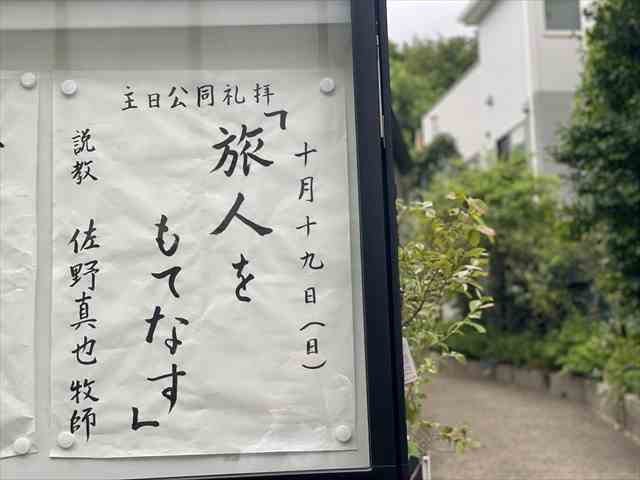 主日公同礼拝
十月十九日(日)
「旅人を
もてなす」
説教 佐野真也 牧師